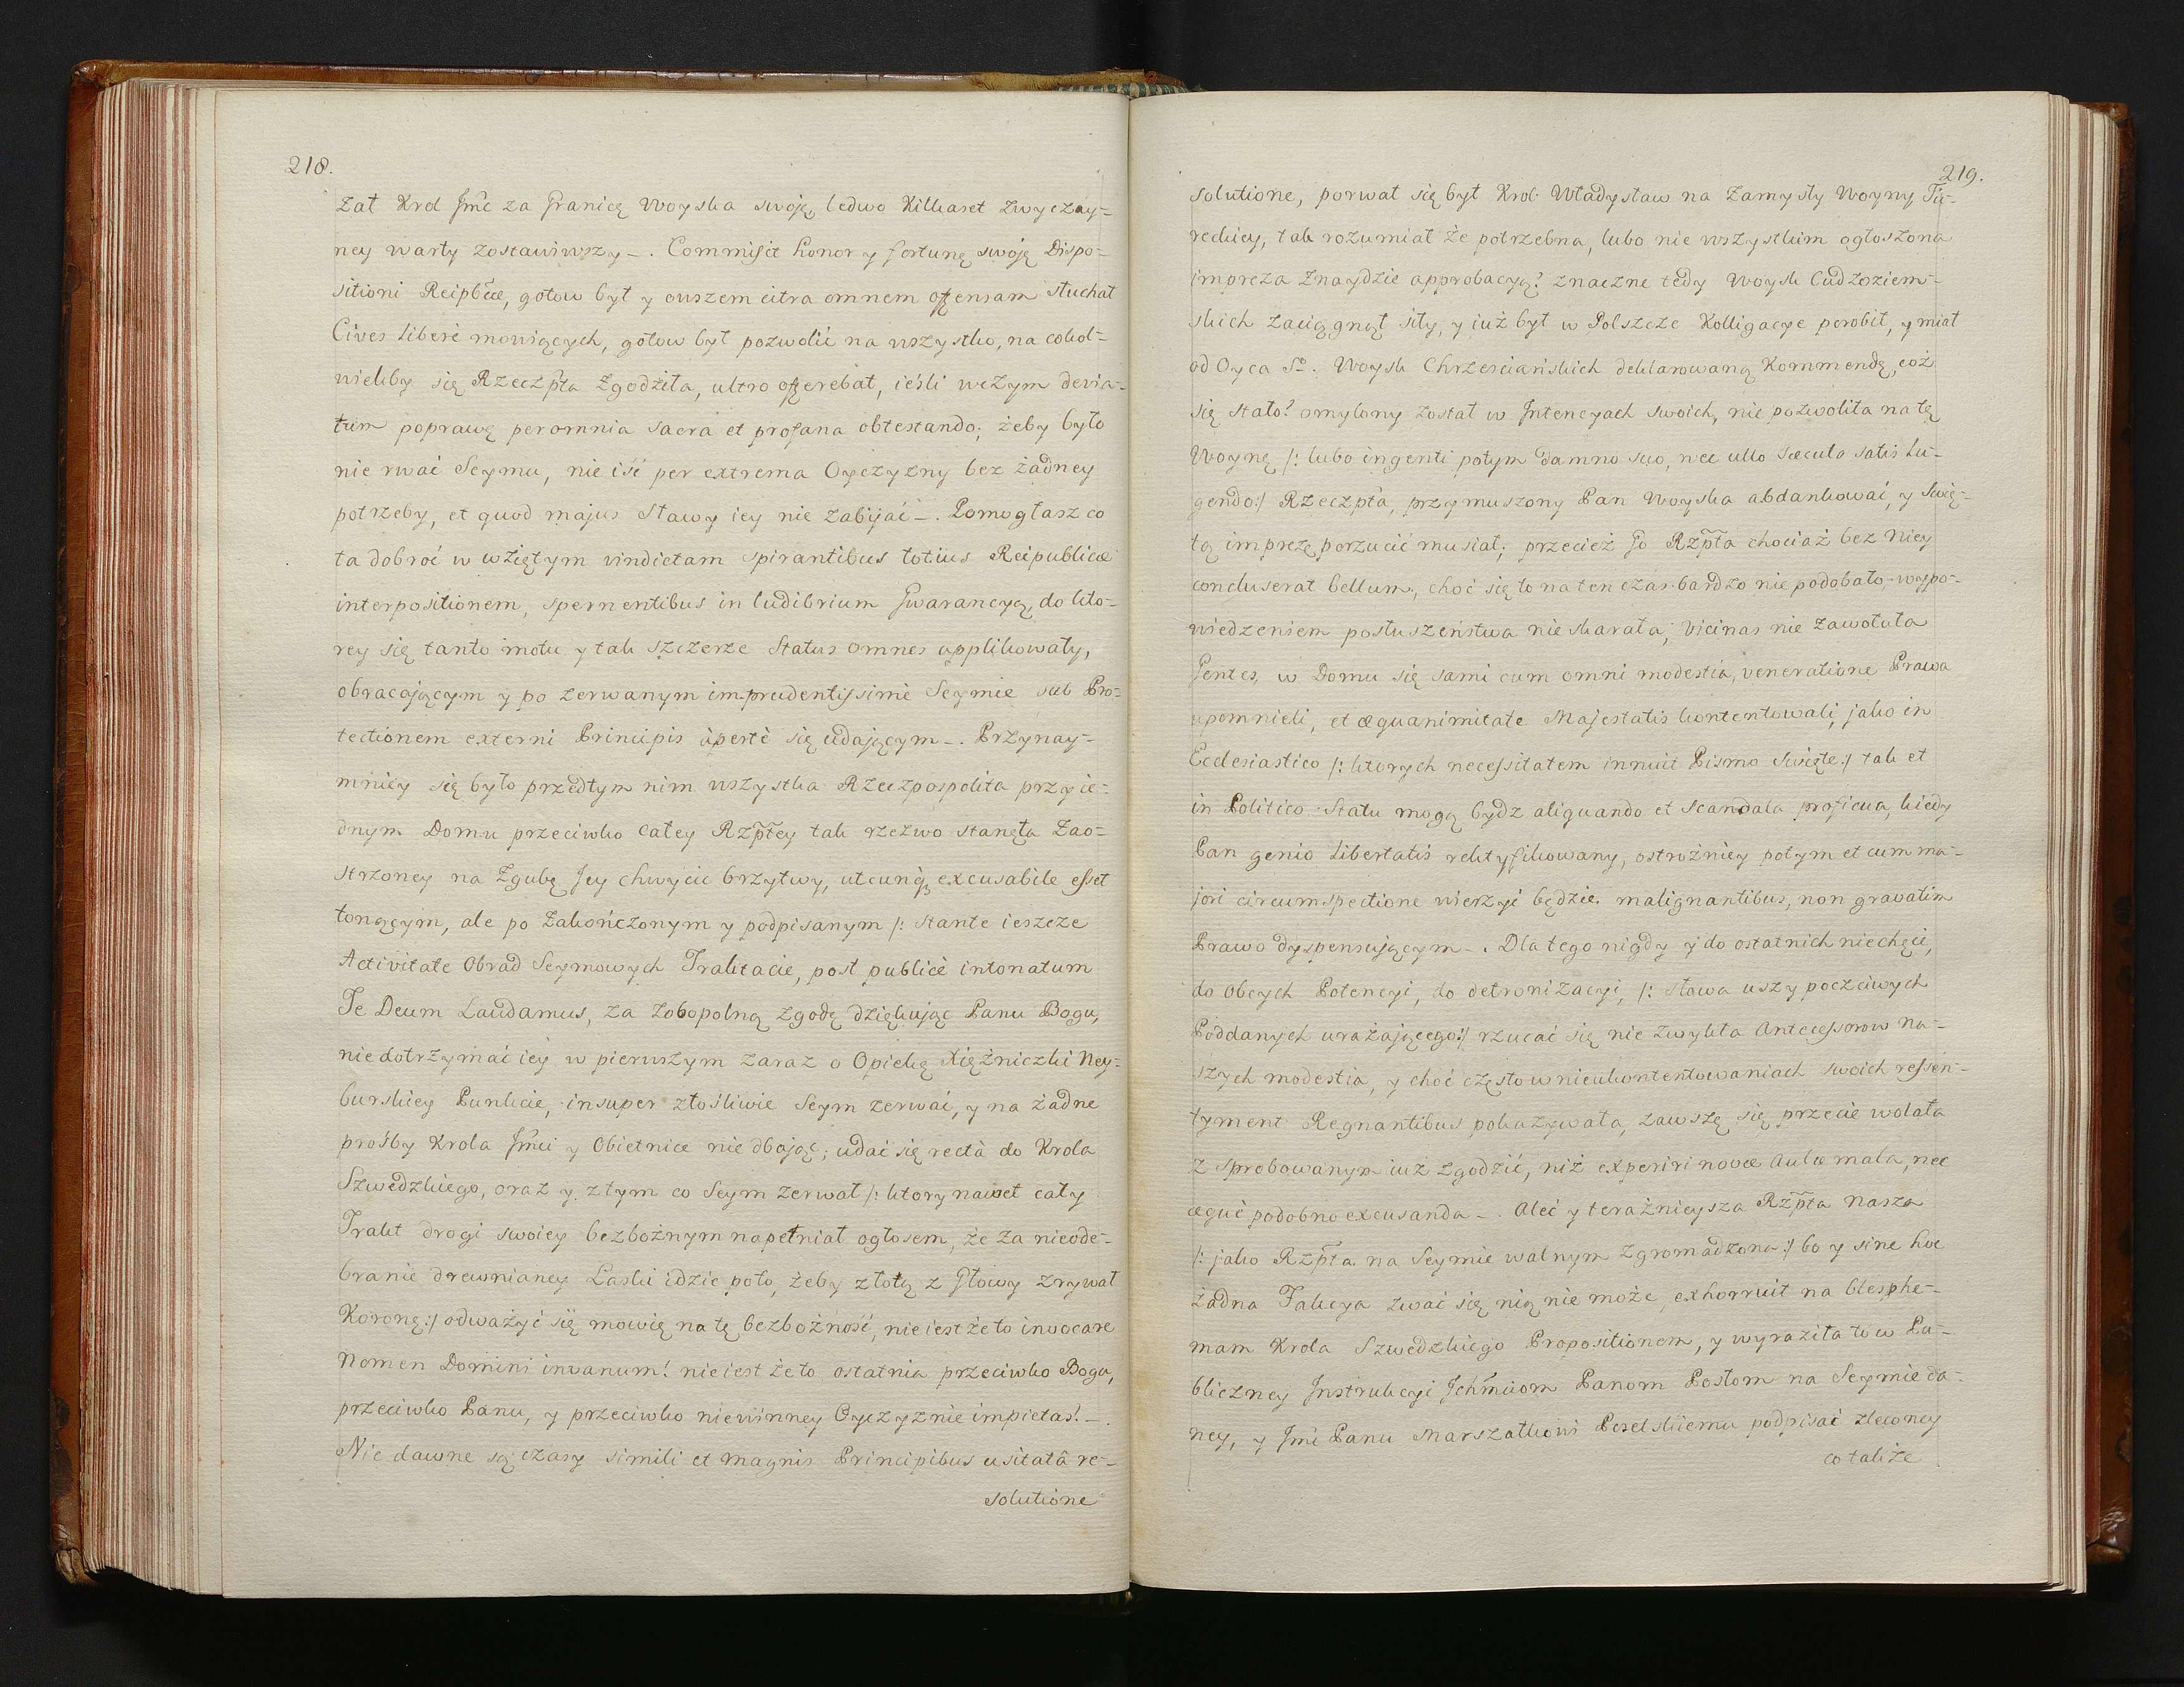 218.
zał Krol Jmć za Granicę Woyska swoję ledwo Kilkaset zwyczay-
ney warty zostawiwszy –. Commisit honor y fortunę swoję Dispo-
sitioni Reipbcæ, gotow był y owszem citra omnem offensam słuchał
Cives liberè mowiących, gotow był pozwolić na wszystko, na cokol-
wiekby się Rzeczpta zgodziła, ultro offerebat, ieśli wczym devia-
tum poprawę per omnia sacra et profana obtestando; żeby było
nie rwać Seymu, nie iść per extrema Oyczyzny bez żadney
potrzeby, et quod majus Sławy iey nie zabijać –. Pomogłasz co
ta dobroć w wziętym vindictam spirantibus totius Reipublicæ
interpositionem, spernentibus in ludibrium Gwarancyą, do kto-
rey się tanto motu y tak szczerze Status omnes applikowały,
obracającym y po zerwanym imprudentissimè Seymie sub Pro-
tectionem externi Principis apertè się udającym –. Przynay-
mniey się było przedtym nim wszystka Rzeczpospolita przy ie-
dnym Domu przeciwko całey Rzptey tak rzezwo stanęła Zao-
strzoney na Zgubę Jey chwycić brzytwy, utcunq; excusabile esset
tonącym, ale po Zakończonym y podpisanym /: stante ieszcze
Activitate Obrad Seymowych Traktacie, post publicè intonatum
Te Deum Laudamus, za zobopolną zgodę dziękując Panu Bogu,
niedotrzymać iey w pierwszym zaraz o Opiekę Xiężniczki Ney-
burskiey Punkcie, insuper złośliwie Seym zerwać, y na żadne
prośby Krola Jmci y Obietnice nie dbając; udać się rectà do Krola
Szwedzkiego, oraz y z tym co Seym zerwał /: ktory nawet cały
Trakt drogi swoiey bezbożnym napełniał ogłosem, że za nieode-
branie drewnianey Laski idzie poto, żeby złotą z Głowy zrywał
Koronę:/ odważyć się mowię na tę bezbożność, nie iest że to invocare
Nomen Domini invanum! nie iest że to ostatnia przeciwko Bogu,
przeciwko Panu, y przeciwko niewinney Oyczyznie impietas! –.
Nie dawne są czasy simili et magnis Principibus usitatâ re-
solutione
219.
solutione, porwał się był Krol Władysław na Zamysły Woyny Tu-
reckiey, tak rozumiał że potrzebna, lubo nie wszystkim ogłoszona
impreza Znaydzie approbacyą? znaczne tedy Woysk Cudzoziem-
skich zaciągnął siły, y iuż był w Polszcze Kolligacye porobił, y miał
od Oyca So. Woysk Chrześciańskich deklarowaną Kommendę, coż
się stało? omylony został w Intencyach swoich, nie pozwoliła na tę
Woynę /: lubo ingenti potym damno suo, nec ullo sæculo satis Lu-
gendo:/ Rzeczpta, przymuszony Pan Woyska abdankować, y Świę-
tą imprezę porzucić musiał; przecież Go Rzpta chociaż bez Niey
concluserat bellum, choć się to na ten czas bardzo nie podobało wypo-
wiedzeniem posłuszeństwa nie skarała, Vicinas nie zawołała
Gentes, w Domu się sami cum omni modestia, veneratione Prawa
upomnieli, et æquanimitate Majestatis kontentowali, jako in
Ecclesiastico /: ktorych necessitatem innuit Pismo Święte:/ tak et
in Politico Statu mogą bydz aliquando et scandala proficua, kiedy
Pan genio Libertatis rektyfikowany, ostrożniey potym et cum ma-
jori circumspectione wierzyć będzie malignantibus, non gravatim
Prawo dyspensującym –. Dla tego nigdy y do ostatnich niechęci,
do Obcych Potencyi, do detronizacyi, /: słowa uszy poczciwych
Poddanych urażającego:/ rzucać się nie zwykła Antecessorow na-
szych modestia, y choć często w nieukontentowaniach swoich ressen-
tyment Regnantibus pokazywała, zawszę się przecie wolała
z sprobowanym iuż zgodzić, niż experiri novæ aulæ mala, nec
æquè podobno excusanda –. Aleć y teraźnieysza Rzpta Nasza
/: jako Rzpta na Seymie walnym zgromadzona:/ bo y sine hoc
żadna Fakcya zwać się nią nie może, exhorruit na blesphe-
mam Krola Szwedzkiego Propositionem, y wyraziła to w Pu-
bliczney Instrukcyi Ichmciom Panom Posłom na Seymie da-
ney, y Jmć Panu Marszałkowi Poselskiemu podpisać zleconey
co także